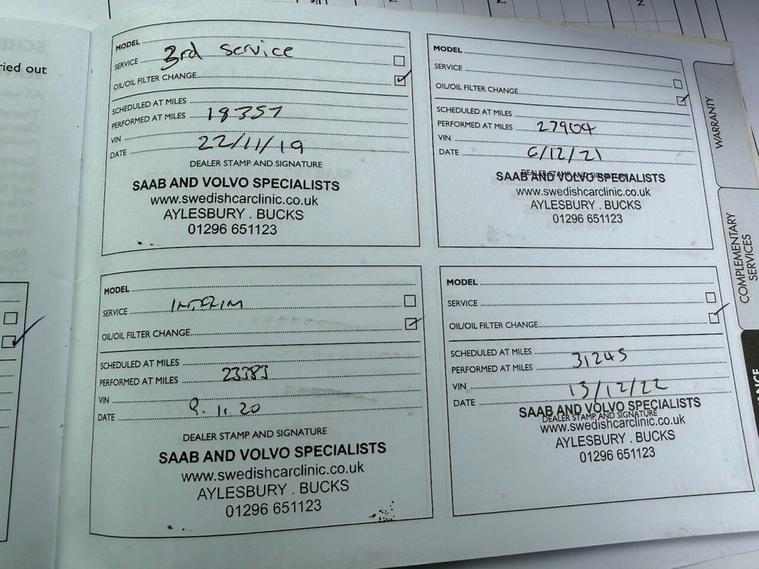 ried out
MODEL
SERVICE 3rd Service
OIL/OIL FILTER CHANGE
SCHEDULED AT MILES
PERFORMED AT MILES 18357
VIN
DATE 22/11/19
DEALER STAMP AND SIGNATURE
SAAB AND VOLVO SPECIALISTS
www.swedishcarclinic.co.uk
AYLESBURY . BUCKS
01296 651123
MODEL
SERVICE
OIL/OIL FILTER CHANGE
SCHEDULED AT MILES
PERFORMED AT MILES 27904
VIN
DATE 6/12/21
SAAB AND VOLVO SPECIALISTS
www.swedishcarclinic.co.uk
AYLESBURY . BUCKS
01296 651123
MODEL
SERVICE INTERIM
OIL/OIL FILTER CHANGE
SCHEDULED AT MILES
PERFORMED AT MILES 23383
VIN
DATE 9.11.20
DEALER STAMP AND SIGNATURE
SAAB AND VOLVO SPECIALISTS
www.swedishcarclinic.co.uk
AYLESBURY . BUCKS
01296 651123
MODEL
SERVICE
OIL/OIL FILTER CHANGE
SCHEDULED AT MILES
PERFORMED AT MILES 31245
VIN
DATE 13/12/22
SAAB AND VOLVO SPECIALISTS
DEALER STAMP AND SIGNATURE
www.swedishcarclinic.co.uk
AYLESBURY . BUCKS
01296 651123
WARRANTY
COMPLEMENTARY
SERVICES